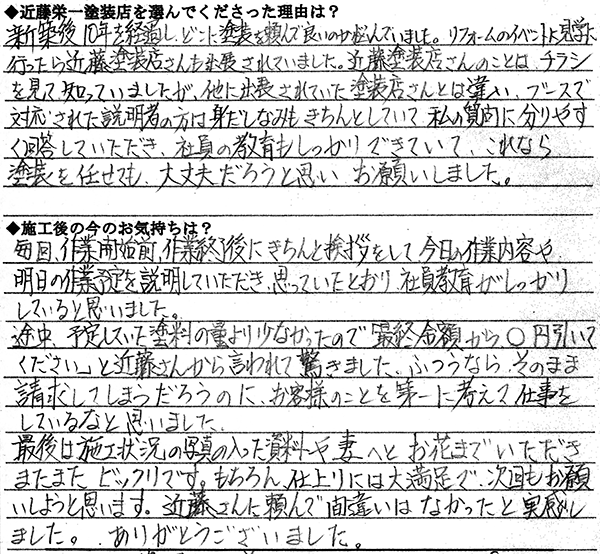 ◆近藤栄一塗装店を選んでくださった理由は？
新築後10年を経過し、どこに塗装を頼んで良いのか悩んでいました。リフォームのイベントに見学に
行ったら近藤塗装店さんも出展されていました。近藤塗装店さんのことは、チラシ
を見て知っていましたが、他に出展されていた塗装店さんとは違い、ブースで
対応された説明者の方は身だしなみもきちんとしていて、私の質問に分りやす
く回答していただき、社員の教育もしっかりできていて、これなら
塗装を任せても、大丈夫だろうと思い、お願いしました。
◆施工後の今のお気持ちは？
毎回、作業開始前、作業終了後にきちんと挨拶をして、今日の作業内容や、
明日の作業予定を説明していただき、思っていたとおり社員教育がしっかり
していると思いました。
途中、予定していた塗料の量より少なかったので「最終金額から〇円引いて
ください」と近藤さんから言われて驚きました。ふつうなら、そのまま
請求してしまうだろうのに、お客様のことを第一に考えて仕事を
しているなと思いました。
最後は施工状況の写真の入った資料や妻へとお花までいただき
またまた ビックリです。もちろん、仕上りには大満足で、次回もお願
いしようと思います。近藤さんに頼んで間違いはなかったと実感し
ました。ありがとうございました。